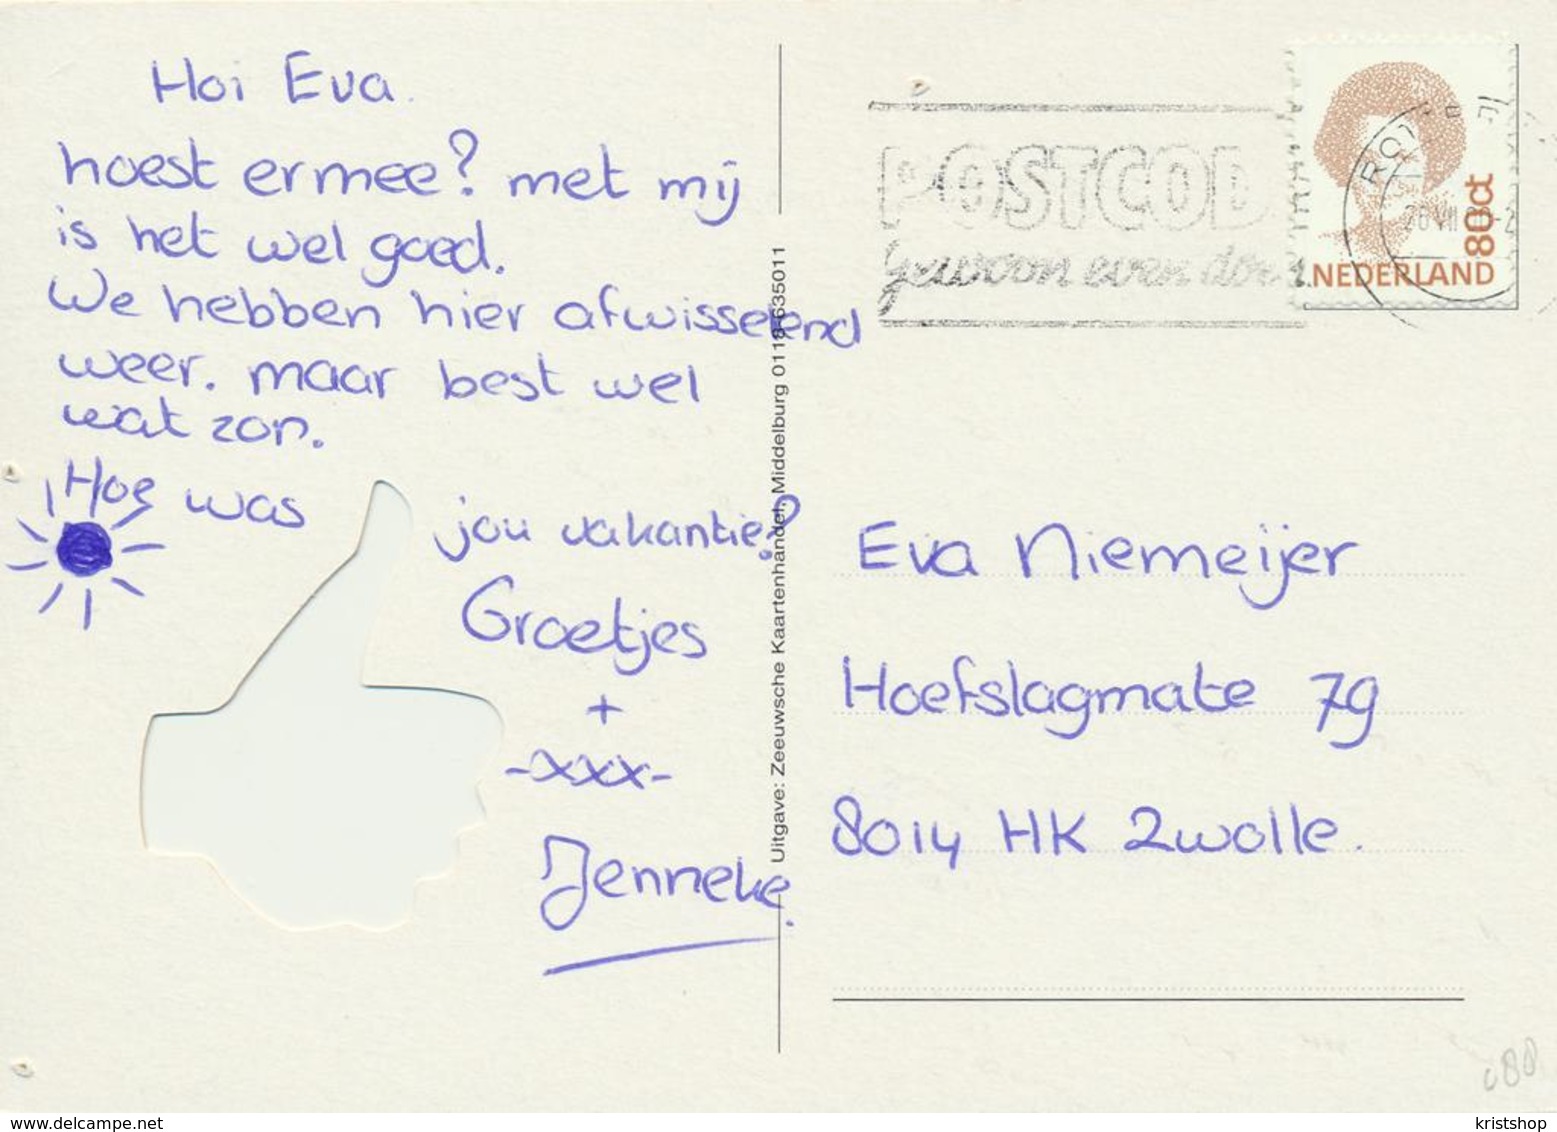 Hoi Eva.
hoest ermee? met mij
is het wel goed.
We hebben hier afwisselend
weer. maar best wel
wat zon.
Hoe was jou vakantie?
Groetjes
+
-xxx-
Jenneke.
Uitgave: Zeeuwsche Kaartenhandel, Middelburg 0118-635011
POSTCOD
Gewoon even doen
80ct
NEDERLAND
Eva Niemeijer
Hoefslagmate 79
8014 HK Zwolle.
delcampe.net
kristshop